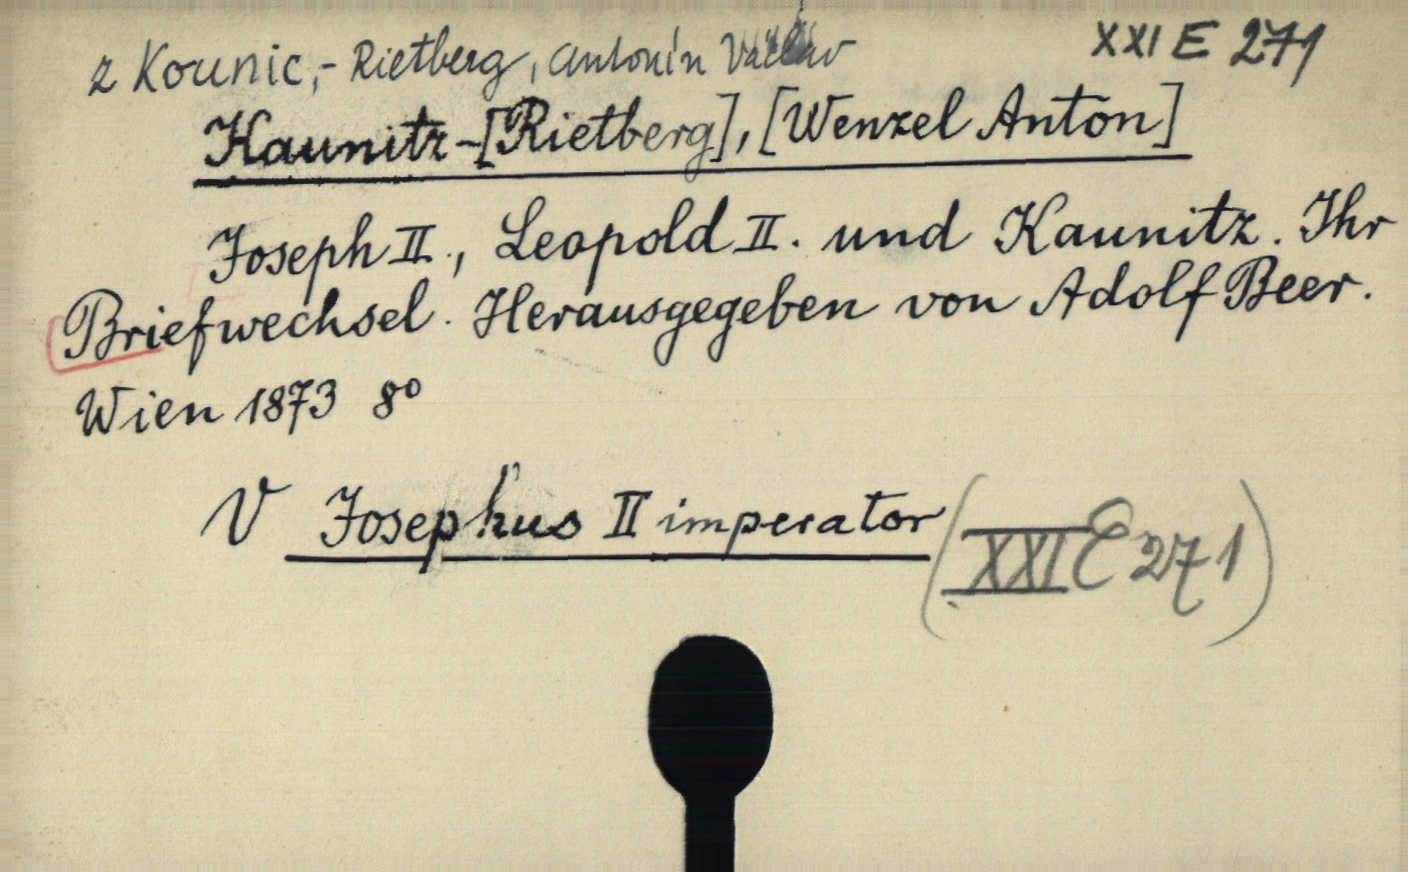 z Kounic,-Rietberg, Antonín Václav XXI E 271
Kaunitz-[Rietberg], [Wenzel Anton]
Joseph II., Leopold II. und Kaunitz. Ihr
Briefwechsel. Herausgegeben von Adolf Beer.
Wien 1873 8°
V Josephus II imperator (XXI E 271)